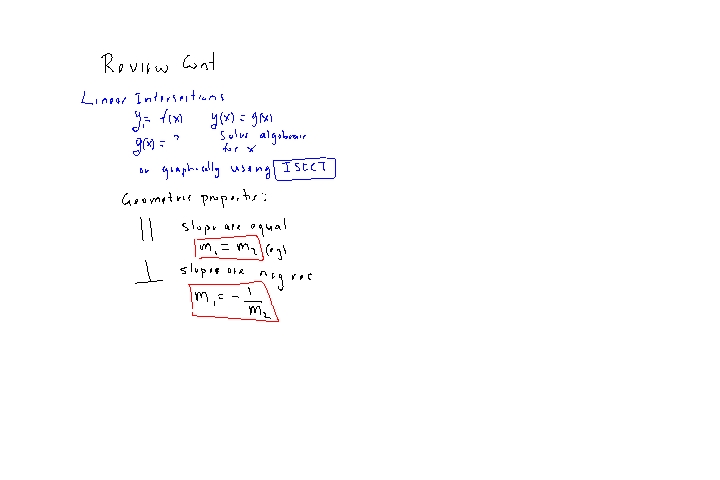 Review Cont
Linear Intersections
y₁ = f(x) y(x) = g(x)
g(x) = ? Solve algebraic
for x
or graphically using ISECT
Geometric properties:
|| slope are equal
m₁ = m₂
⊥ slopes are neg rec
m₁ = - 1/m₂